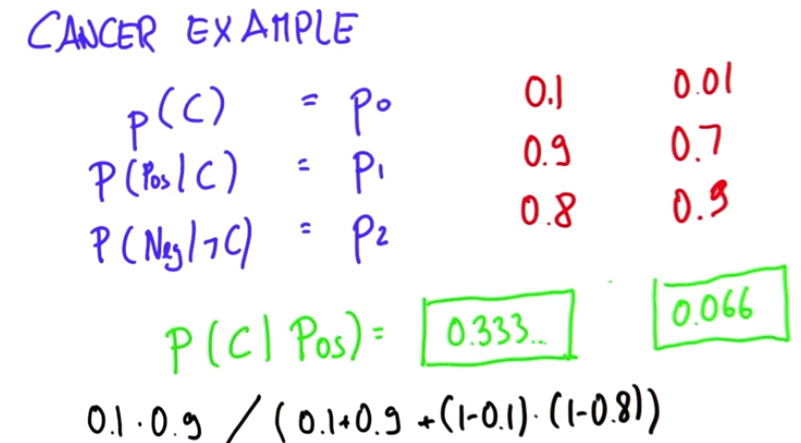 CANCER EXAMPLE
P(C) = P0 0.1 0.01
P(Pos|C) = P1 0.9 0.7
P(Neg|¬C) = P2 0.8 0.9
P(C|Pos) = 0.333.. 0.066
0.1·0.9 / (0.1+0.9 +(1-0.1)·(1-0.8))